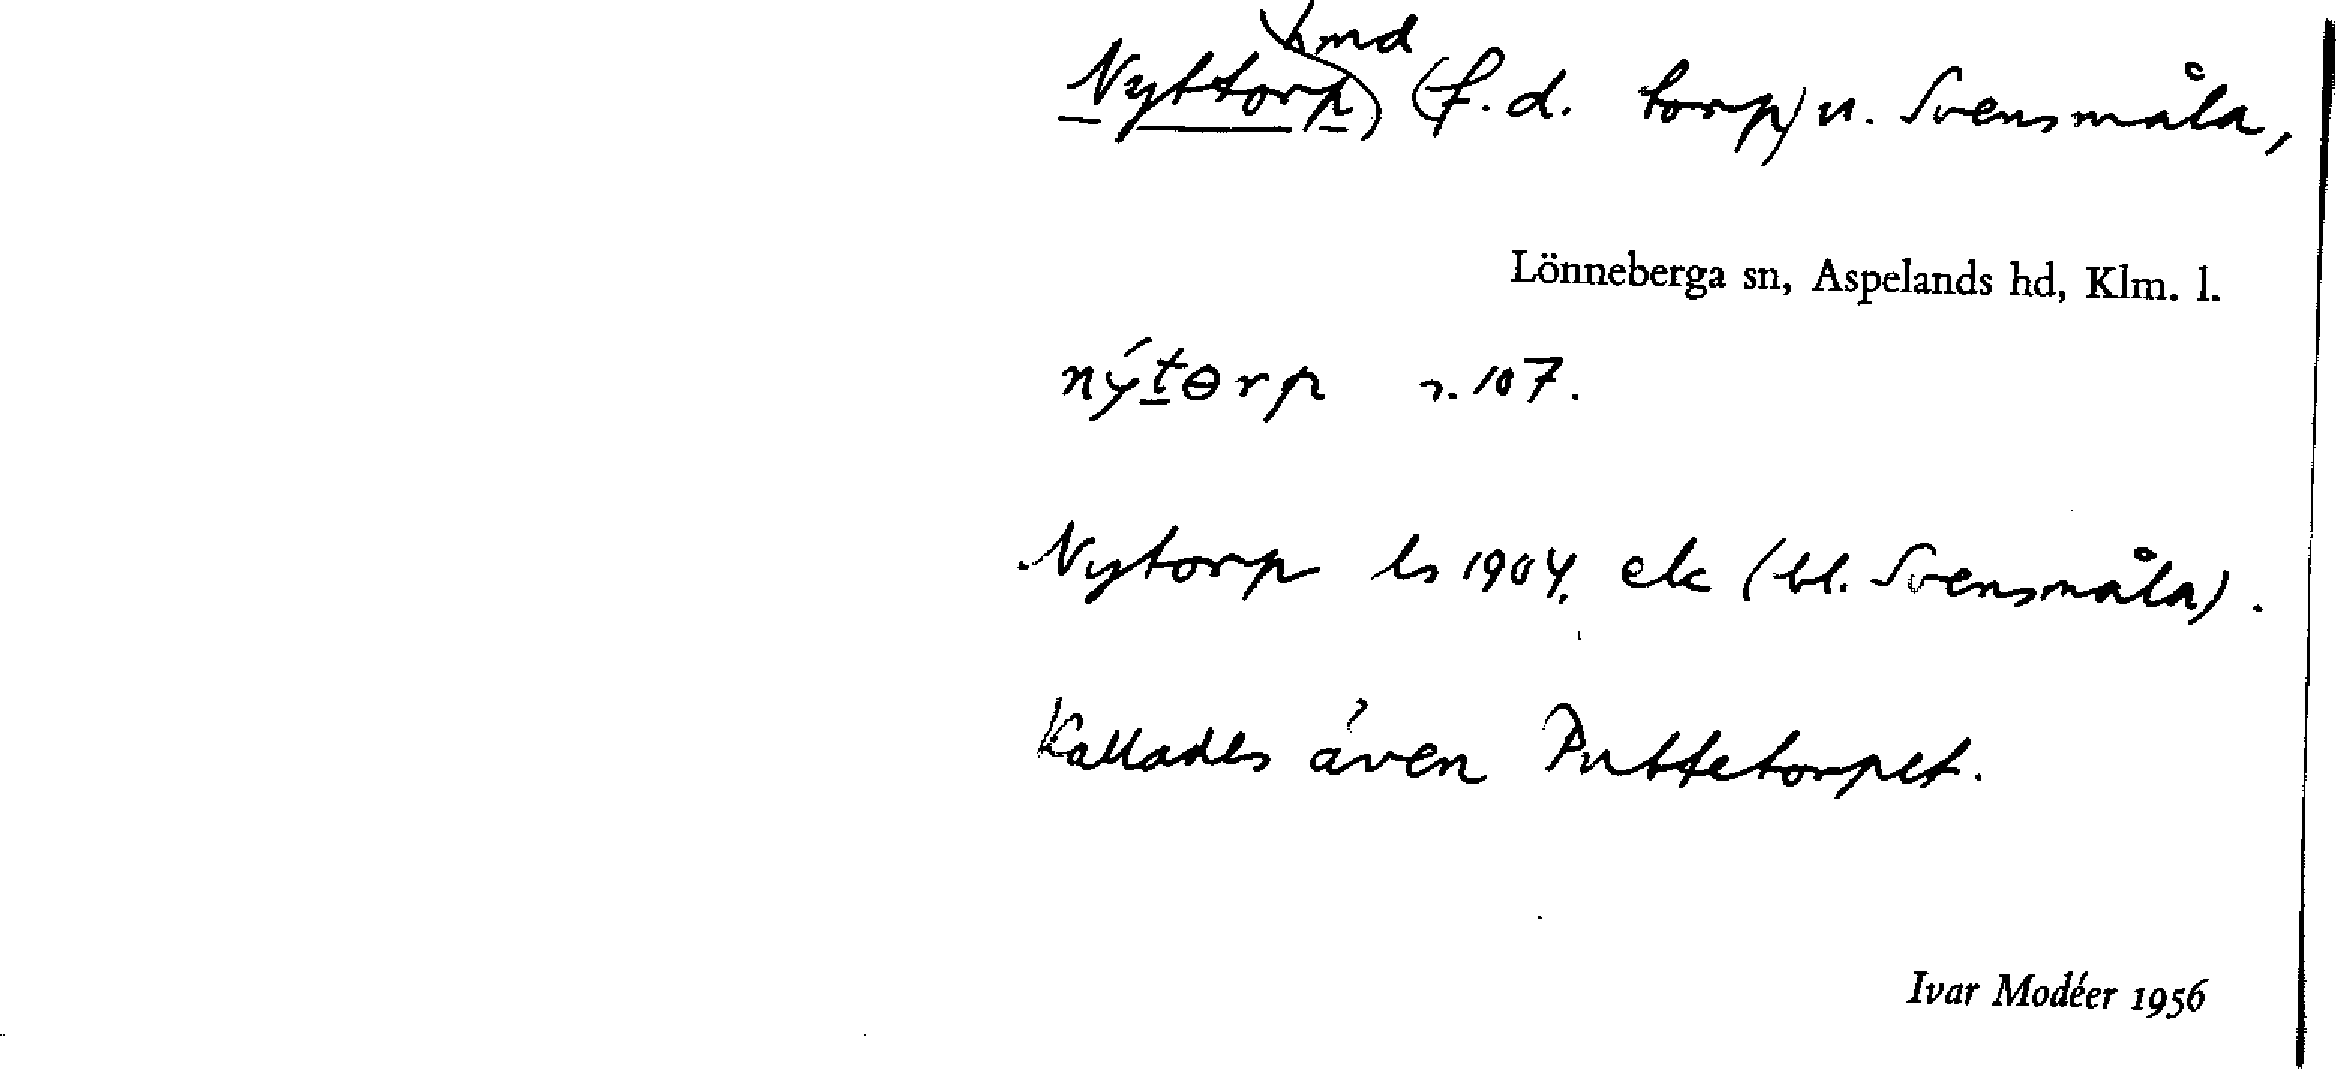 hmd
Nyttorp (f.d. torp) u. Svensmåla,
Lönneberga sn, Aspelands hd, Klm. l.
ný̱tɵrp r. 107.
Nytorp ls 1904. elc (bl. Svensmåla).
Kallades även Puttetorpet.
Ivar Modéer 1956